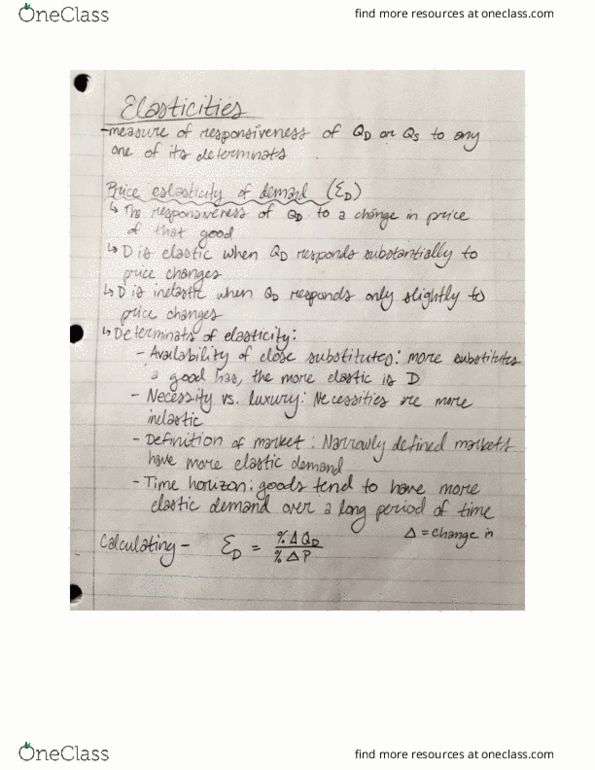 OneClass
find more resources at oneclass.com
Elasticities
-measure of responsiveness of QD or QS to any
one of its determinats
Price eslasticity of demand (ƐD)
↳ The responsiveness of QD to a change in price
of that good
↳ D is elastic when QD responds substantially to
price changes
↳ D is inelastic when QD responds only slightly to
price changes
↳ Determinats of elasticity:
- Availability of close substitutes: more substitutes
a good has, the more elastic is D
- Necessity vs. luxury: Necessities are more
inelastic
- Definition of market: Narrowly defined markets
have more elastic demand
- Time horizon: goods tend to have more
elastic demand over a long period of time
Δ = change in
Calculating - ƐD = %ΔQD / %ΔP
OneClass
find more resources at oneclass.com